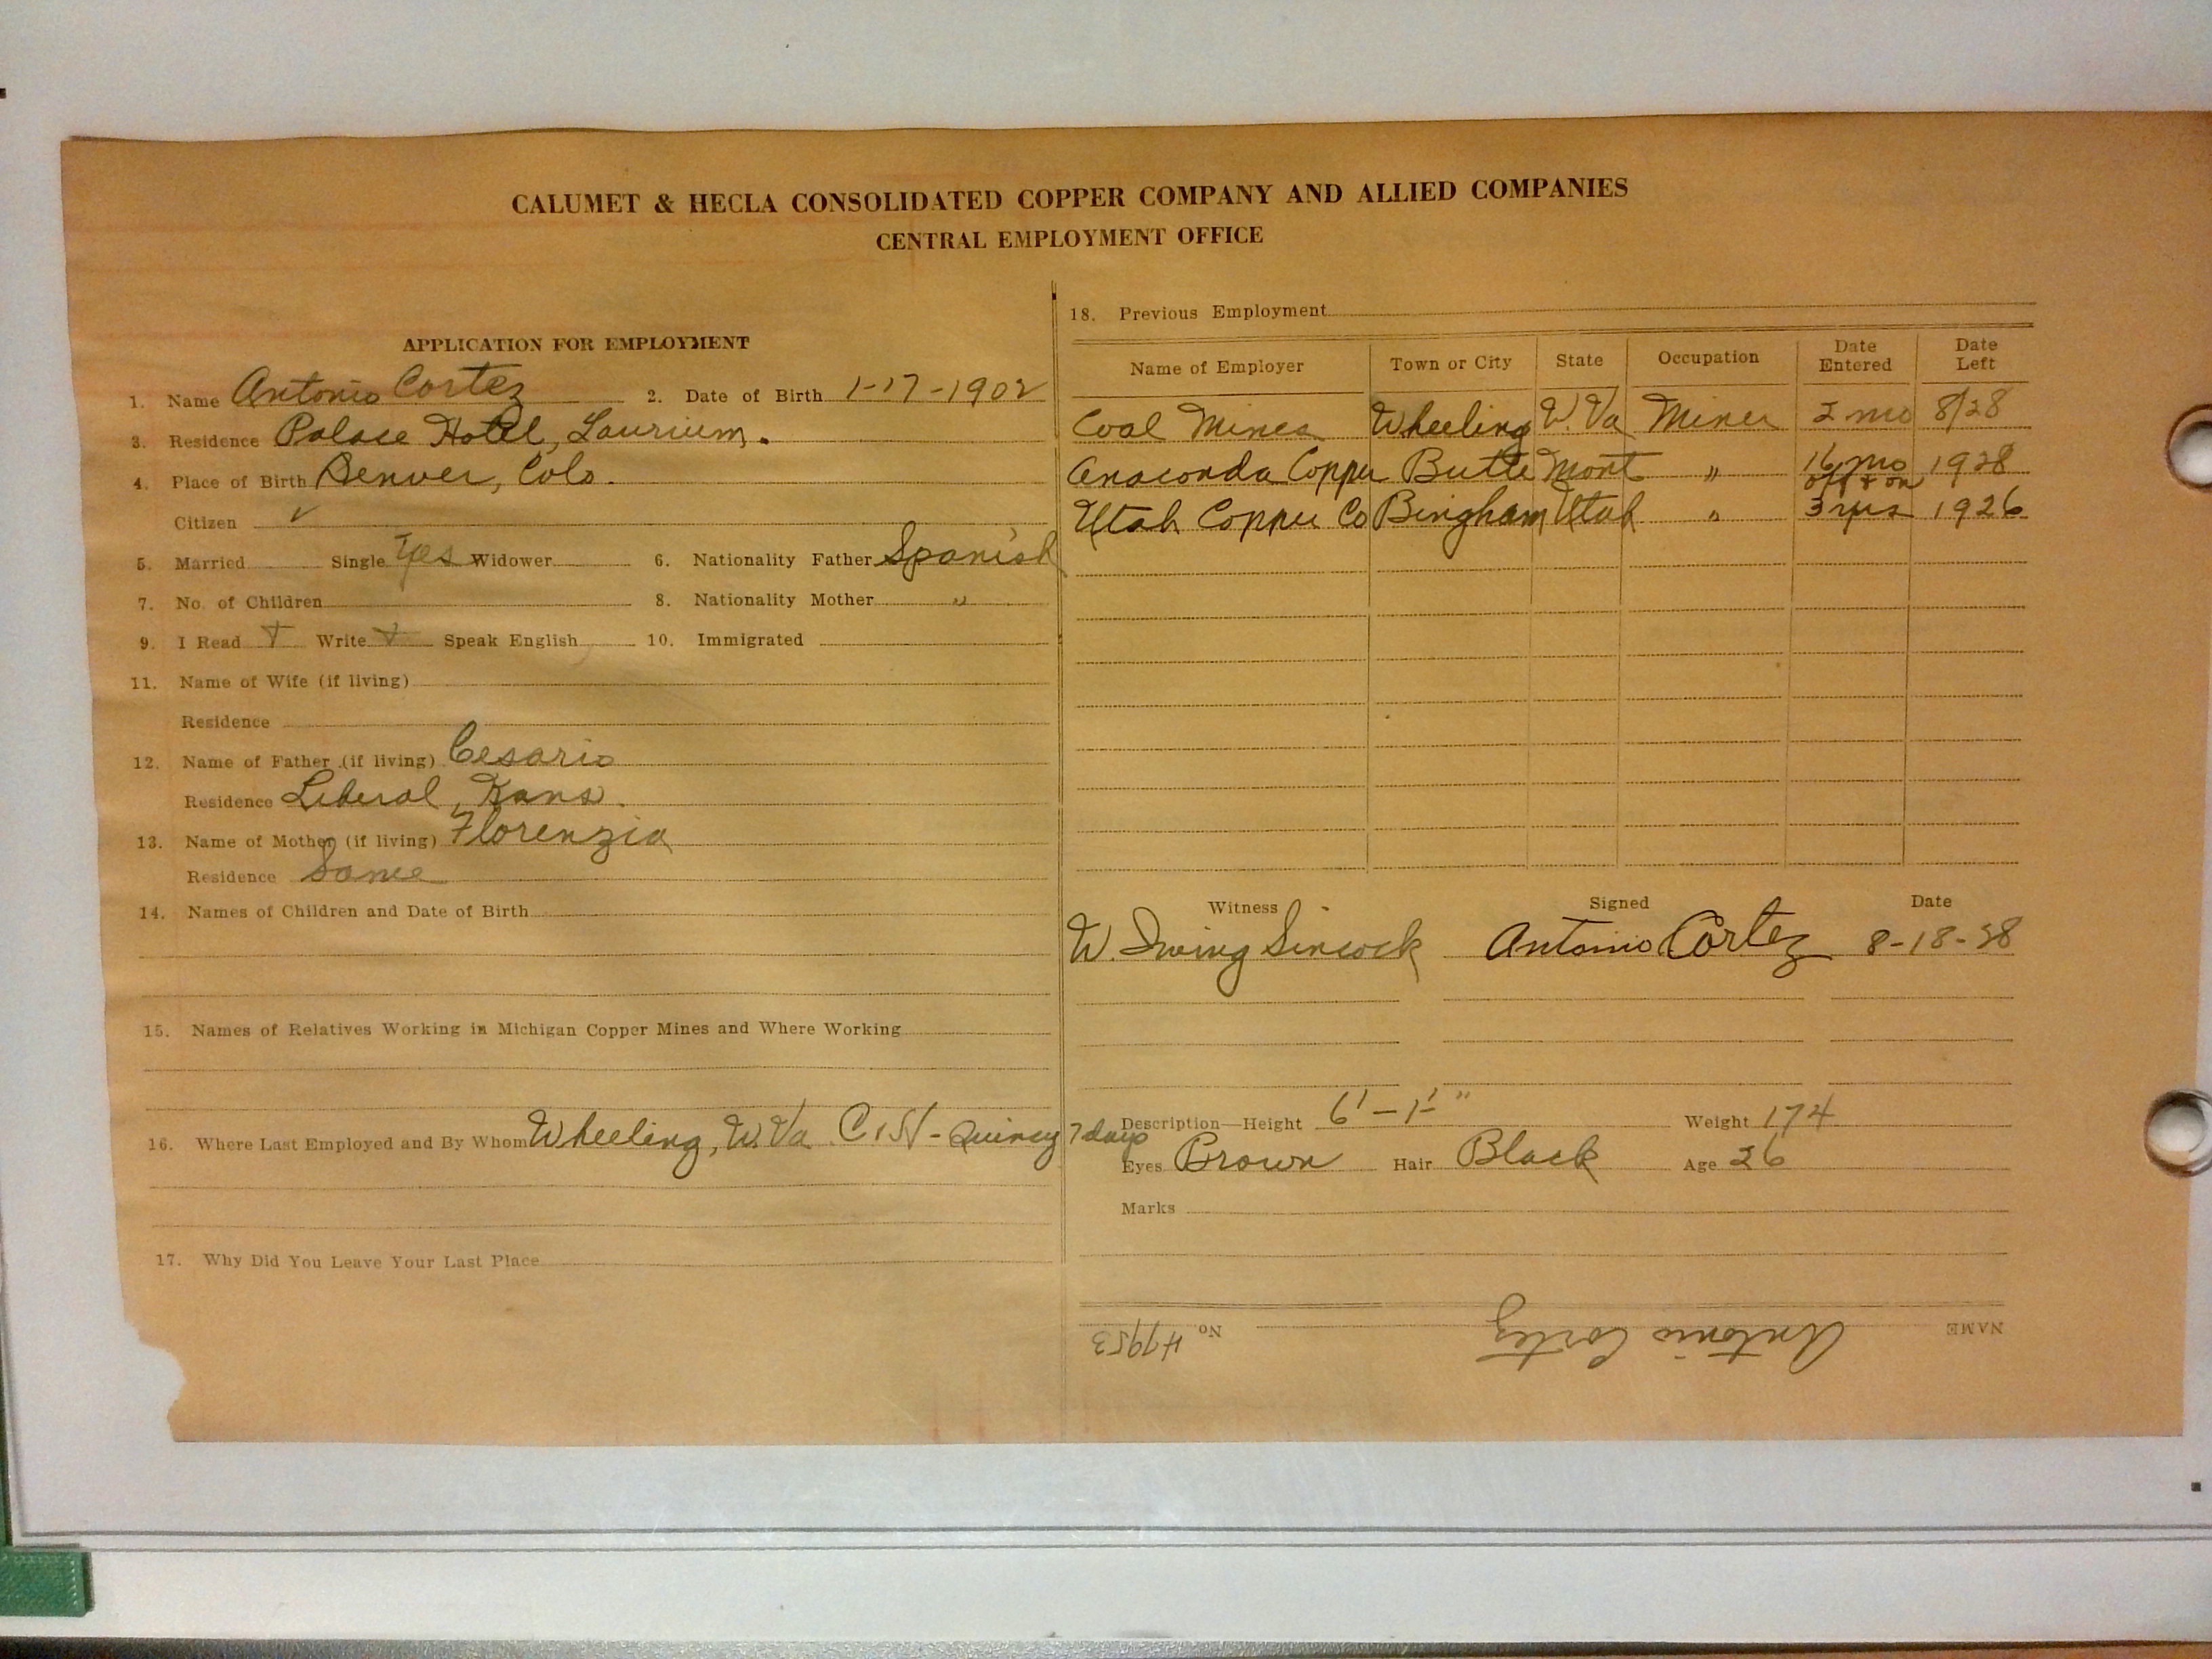 CALUMET & HECLA CONSOLIDATED COPPER COMPANY AND ALLIED COMPANIES
CENTRAL EMPLOYMENT OFFICE
APPLICATION FOR EMPLOYMENT
1. Name Antonio Cortez 2. Date of Birth 1-17-1902
3. Residence Palace Hotel, Laurium.
4. Place of Birth Denver, Colo.
Citizen ✓
5. Married Single Yes Widower 6. Nationality Father Spanish
7. No. of Children 8. Nationality Mother "
9. I Read + Write + Speak English 10. Immigrated
11. Name of Wife (if living)
Residence
12. Name of Father (if living) Cesario
Residence Liberal, Kans.
13. Name of Mother (if living) Florenzia
Residence Same
14. Names of Children and Date of Birth
15. Names of Relatives Working in Michigan Copper Mines and Where Working
16. Where Last Employed and By Whom Wheeling, W. Va C & H - Quincy 7 days
17. Why Did You Leave Your Last Place
18. Previous Employment
Name of Employer Town or City State Occupation Date Entered Date Left
Coal Mines Wheeling W. Va Miner 2 mo 8/28
Anaconda Copper Butte Mont " 16 mo off & on 1928
Utah Copper Co Bingham Utah " 3 yrs 1926
Witness Signed Date
W. Irving Sincock Antonio Cortez 8-18-28
Description—Height 6'-1" Weight 174
Eyes Brown Hair Black Age 26
Marks
NAME Antonio Cortez No. 47953